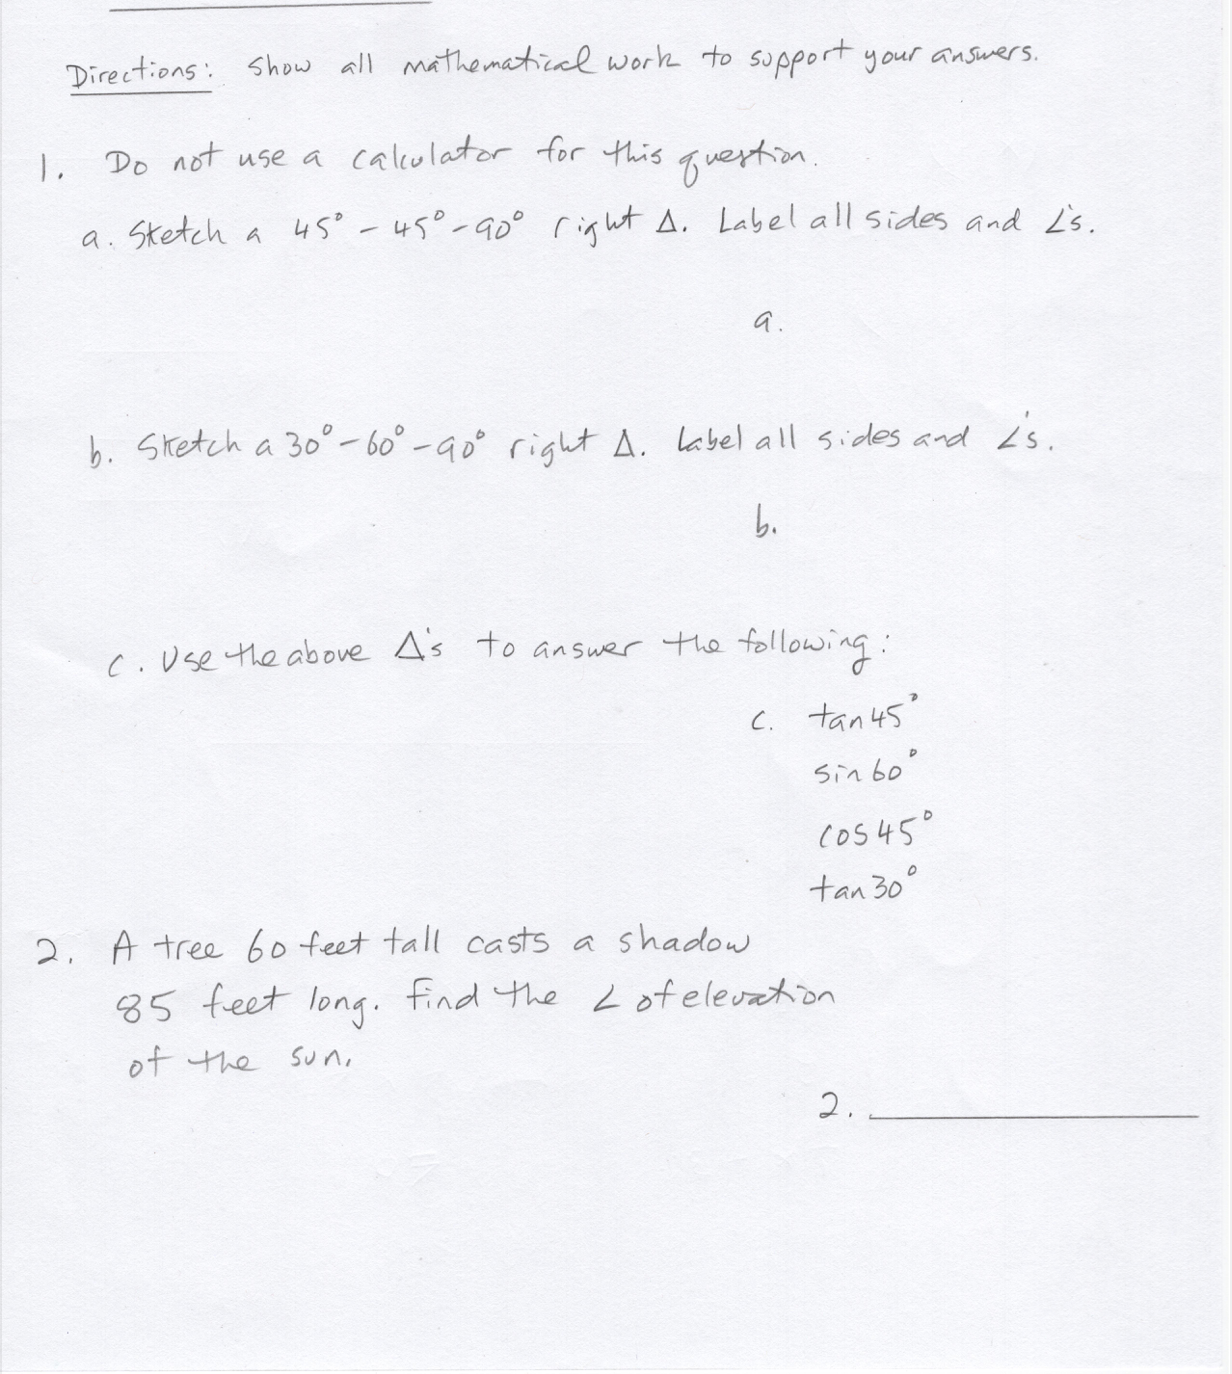 Directions: Show all mathematical work to support your answers.
1. Do not use a calculator for this question.
a. Sketch a 45° - 45° - 90° right Δ. Label all sides and ∠'s.
a.
b. Sketch a 30° - 60° - 90° right Δ. Label all sides and ∠'s.
b.
c. Use the above Δ's to answer the following:
c. tan 45°
sin 60°
cos 45°
tan 30°
2. A tree 60 feet tall casts a shadow
85 feet long. Find the ∠ of elevation
of the sun.
2.